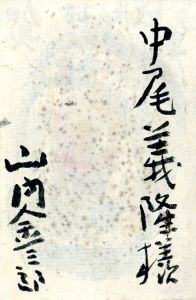 中尾義隆様
山内金三郎